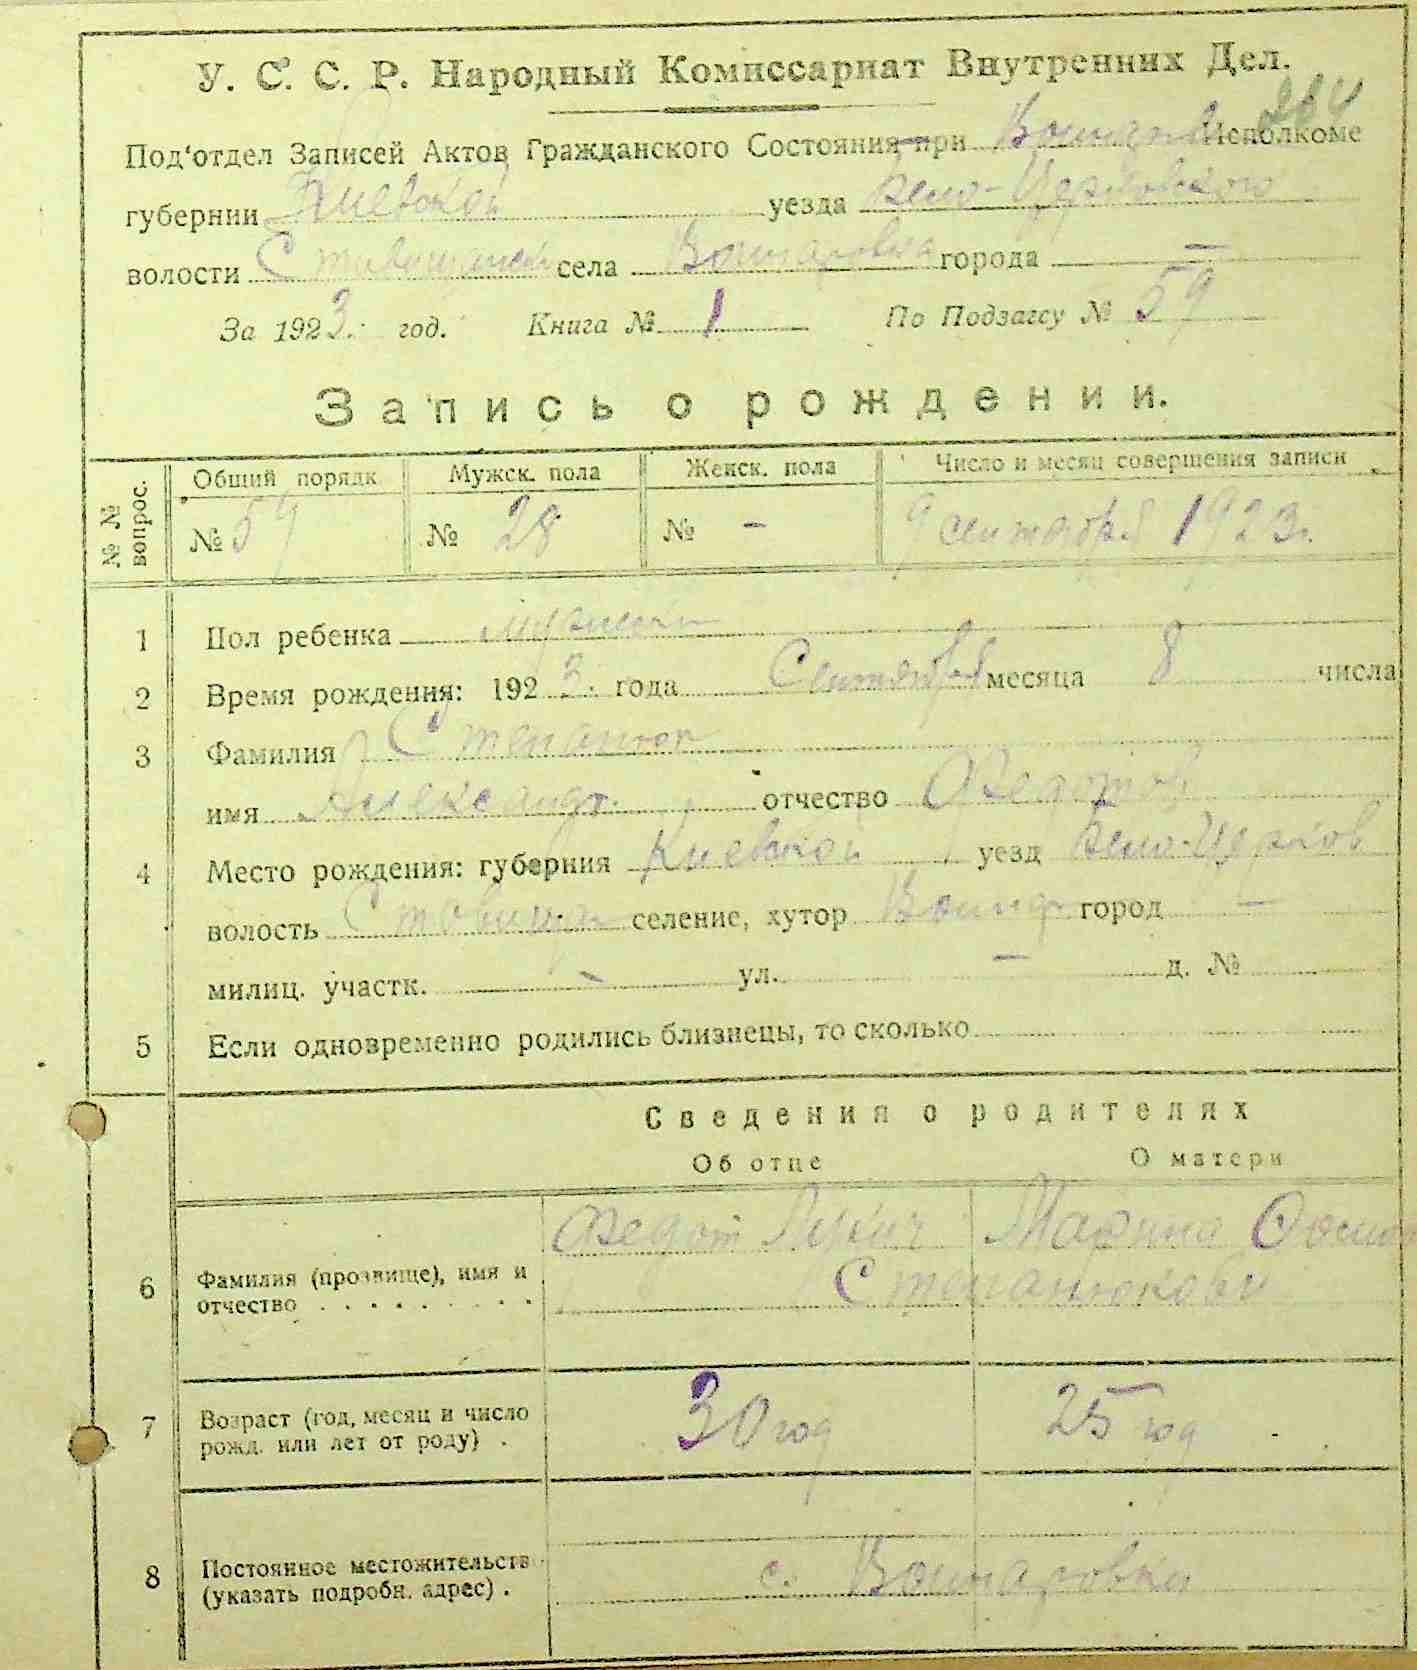 204
У. С. С. Р. Народный Комиссариат Внутренних Дел.
Под'отдел Записей Актов Гражданского Состояния при Исполкоме
губернии Киевской уезда Бело-Церковского
волости Ставищанской села Вотыловка города —
За 1923 г. год. Книга № 1 По Подзагсу № 59
Запись о рождении.
№ № вопрос. Общий порядк. Мужск. пола Женск. пола Число и месяц совершения записи
№ 59 № 28 № - 9 сентября 1923 г.
1 Пол ребенка мужской
2 Время рождения: 1923. года Сентября месяца 8 числа
3 Фамилия Степанюк
имя Александр. отчество Федотов
4 Место рождения: губерния Киевской уезд Бело-Церков
волость Ставищан селение, хутор город —
милиц. участк. - ул. — д. №
5 Если одновременно родились близнецы, то сколько
Сведения о родителях
Об отце О матери
6 Фамилия (прозвище), имя и отчество . . . . . . . . . Федот Лукич Марина
Степанюкови
7 Возраст (год, месяц и число рожд. или лет от роду) . 30 год 25 год
8 Постоянное местожительств (указать подробн. адрес) . с.